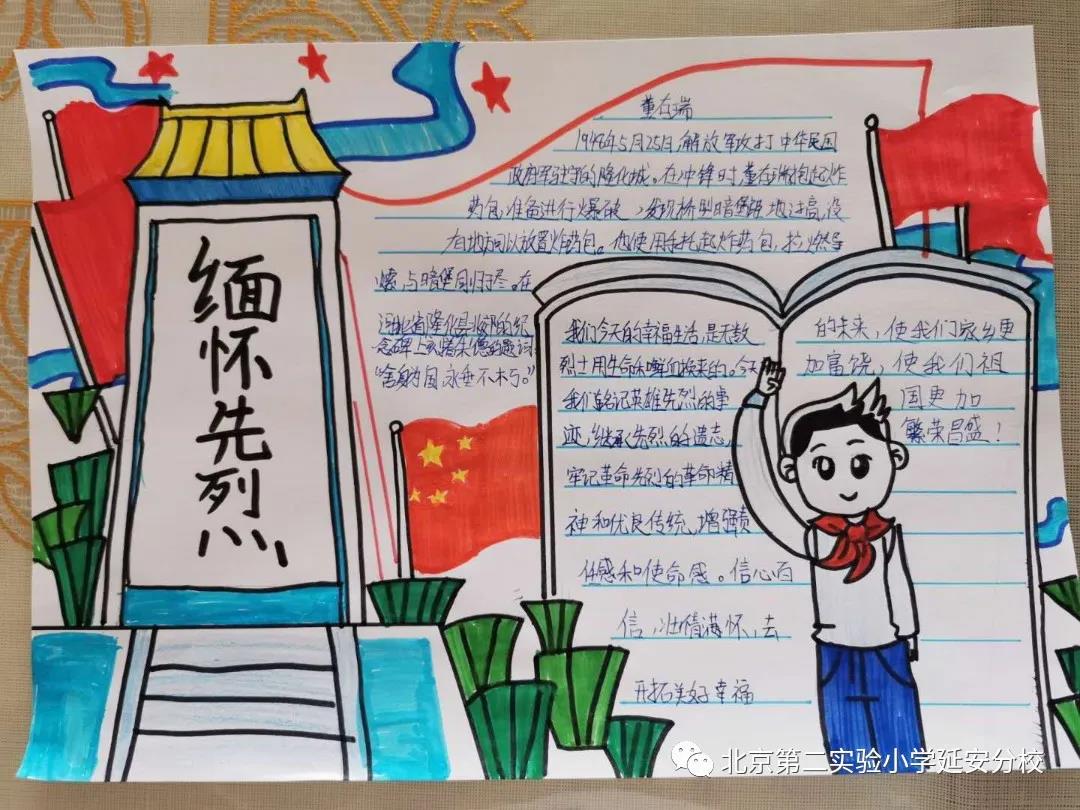 缅怀先烈
董存瑞
1948年5月25日,解放军攻打中华民国
政府军驻守的隆化城。在冲锋时,董存瑞抱起炸
药包,准备进行爆破,发现桥型暗堡距地过高,没
有地方可以放置炸药包。他使用手托起炸药包,拉燃导
火索,与暗堡同归于尽。在
河北省隆化县北郊的纪
念碑上刻着朱德的题词:
“舍身为国,永垂不朽。”
我们今天的幸福生活,是无数
烈士用生命和鲜血换来的。今天
我们铭记英雄先烈的事
迹,继承先烈的遗志,
牢记革命先烈的革命精
神和优良传统,增强责
任感和使命感。信心百
倍,壮情满怀,去
开拓美好幸福
的未来,使我们家乡更
加富饶,使我们祖
国更加
繁荣昌盛!
北京第二实验小学延安分校